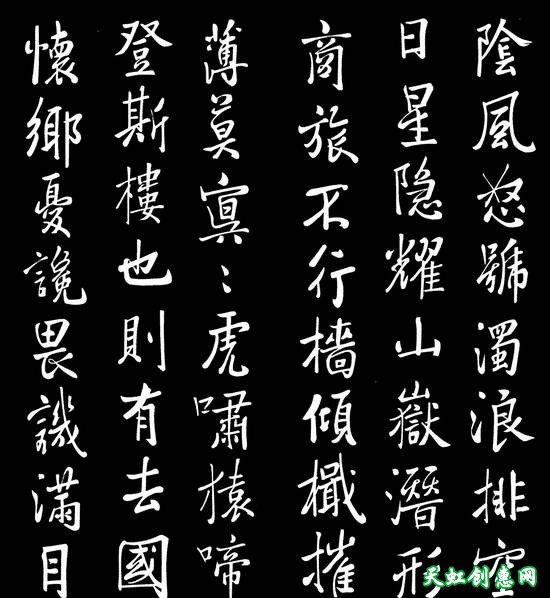 陰風怒號濁浪排空
日星隐耀山嶽潛形
商旅不行檣傾檝摧
薄莫寞〻虎嘯猿啼
登斯樓也則有去國
懷鄉憂讒畏譏滿目
天虹创意网